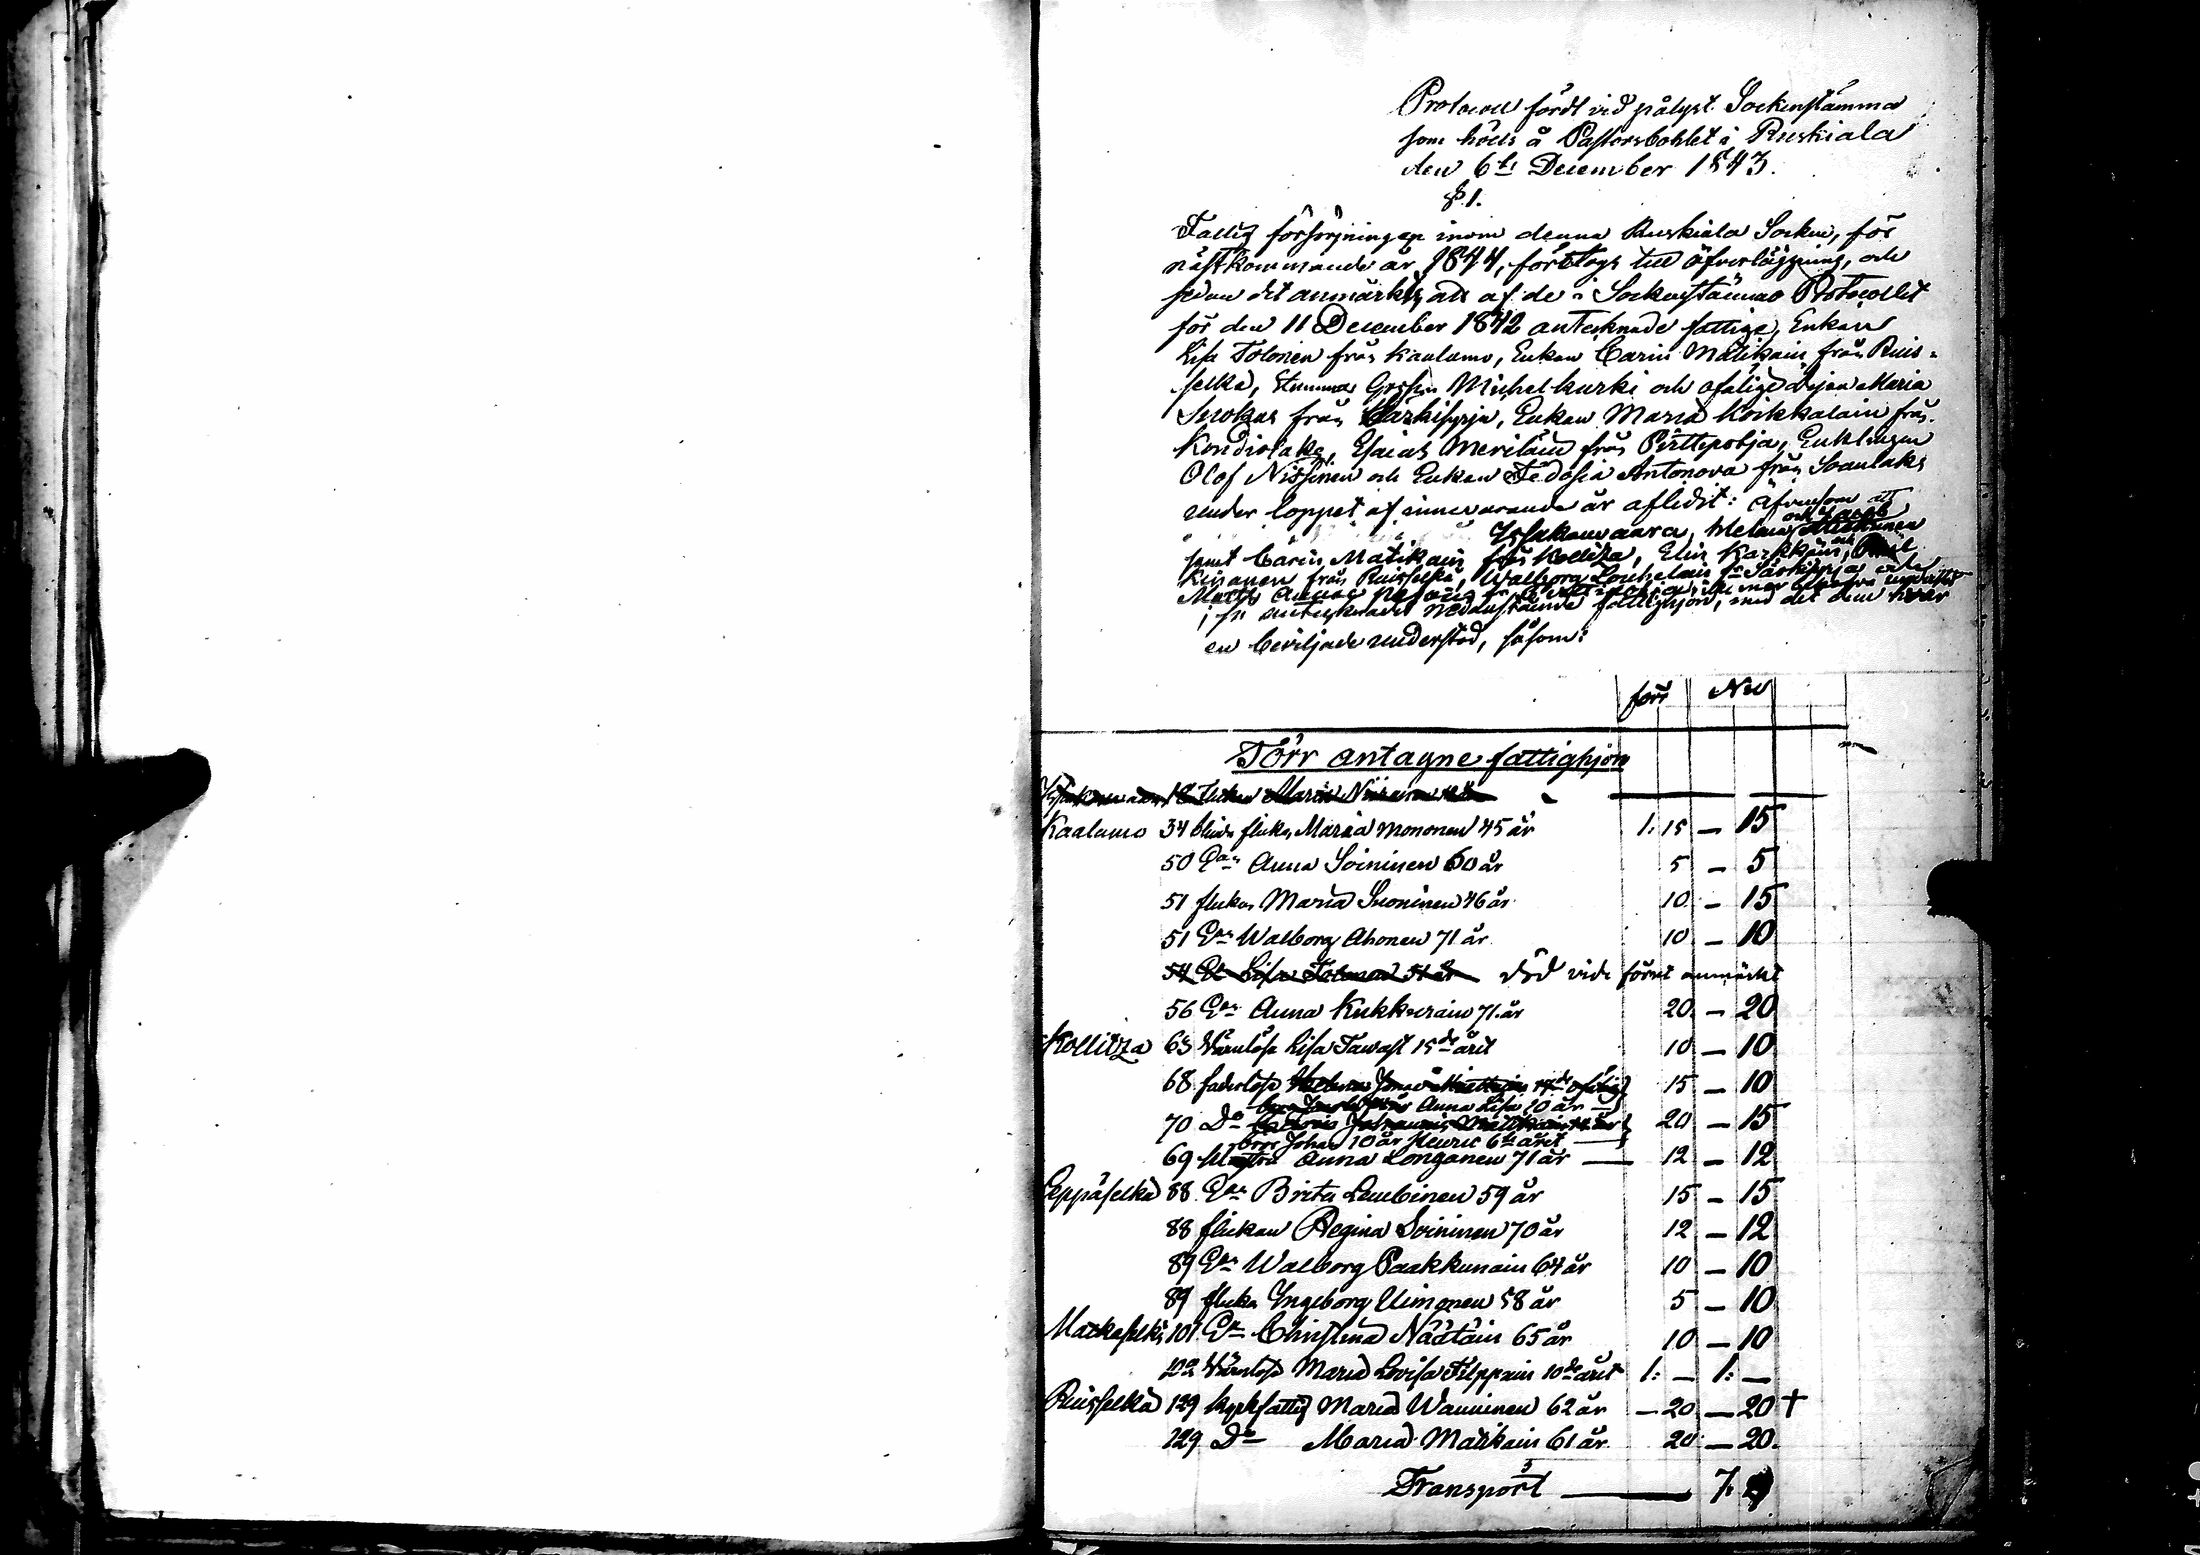 Protocoll fördt vid pålyst Sockenstämma
som hölls å Pastorsbohlet i Ruskiala
den 6te December 1843.
§ 1.
Fattig försörjningen inom denna Ruskiala Socken, för
nästkommande år 1844, företogs till öfverläggning, och
sedan det anmärkts, att af de i Sockenstämmo Protocollet
för den 11 December 1842 antecknade fattige, Enkan
Lisa Tolonen från Kaalamo, Enkan Carin Matikain från Ruis-
selkä, Stumma Michel Kurki och ofälige Maria
från Särkisyrja, Enkan Maria Koikkalain från
Kondiolaks, Esaias Meriläin från Pirttipohja, Enklingen
Olof Nissinen och Enkan Fedosia Antonova från Soanlaks
under loppet af innevarande år aflidit: äfvensom att
och Jacob
Ysjakanvaara, Helena Miettinen
samt Carin Matikain från Kollitza, Elin Karkkain,
Kinanen från Ruisselkä, Walborg Louhelain fr Särkisyrja och
Matts
antecknades nedanstående fattighjon, med det dem hvar
en beviljade understöd, såsom:
förr Nu
Förr antagne fattighjon
Kaalamo 34 blinda flickan Maria Mononen 45 år 1: 15 — 15
50 Enn Anna Soininen 60 år 5 — 5
51 flickan Maria Suoninen 46 år 10 — 15
51 Enn Walborg Ahonen 71 år 10 — 10
54 En Lisa Tolonen 51 år död vide förut anmärkt
56 Enn Anna Kukkurain 71 år 20 — 20
Kollitza 65 Wärnlösa Lisa Tawast 15de året 10 — 10
68 faderlösa 15 — 10
Anna Lisa 10 år
70 Do 20 — 15
bror Johan 10 år Henric 6te året
69 Anna Longanen 71 år — 12 — 12
Leppäselkä 88 Enn Brita Lembinen 59 år 15 — 15
88 flickan Regina Soininen 70 år 12 — 12
89 Enn Walborg Paakkunain 64 år 10 — 10
89 flicka Ingeborg Uimonen 58 år 5 — 10
Matkaselkä 101 En Christina Näätäin 65 år 10 — 10
102 Wärnlösa Maria Lovisa Filppain 10de året 1: — 1: —
Ruisselkä 129 kyrkfattig Maria Wanninen 62 år — 20 — 20 †
129 Do Maria Markain 61 år 20 — 20
Transport — 7.